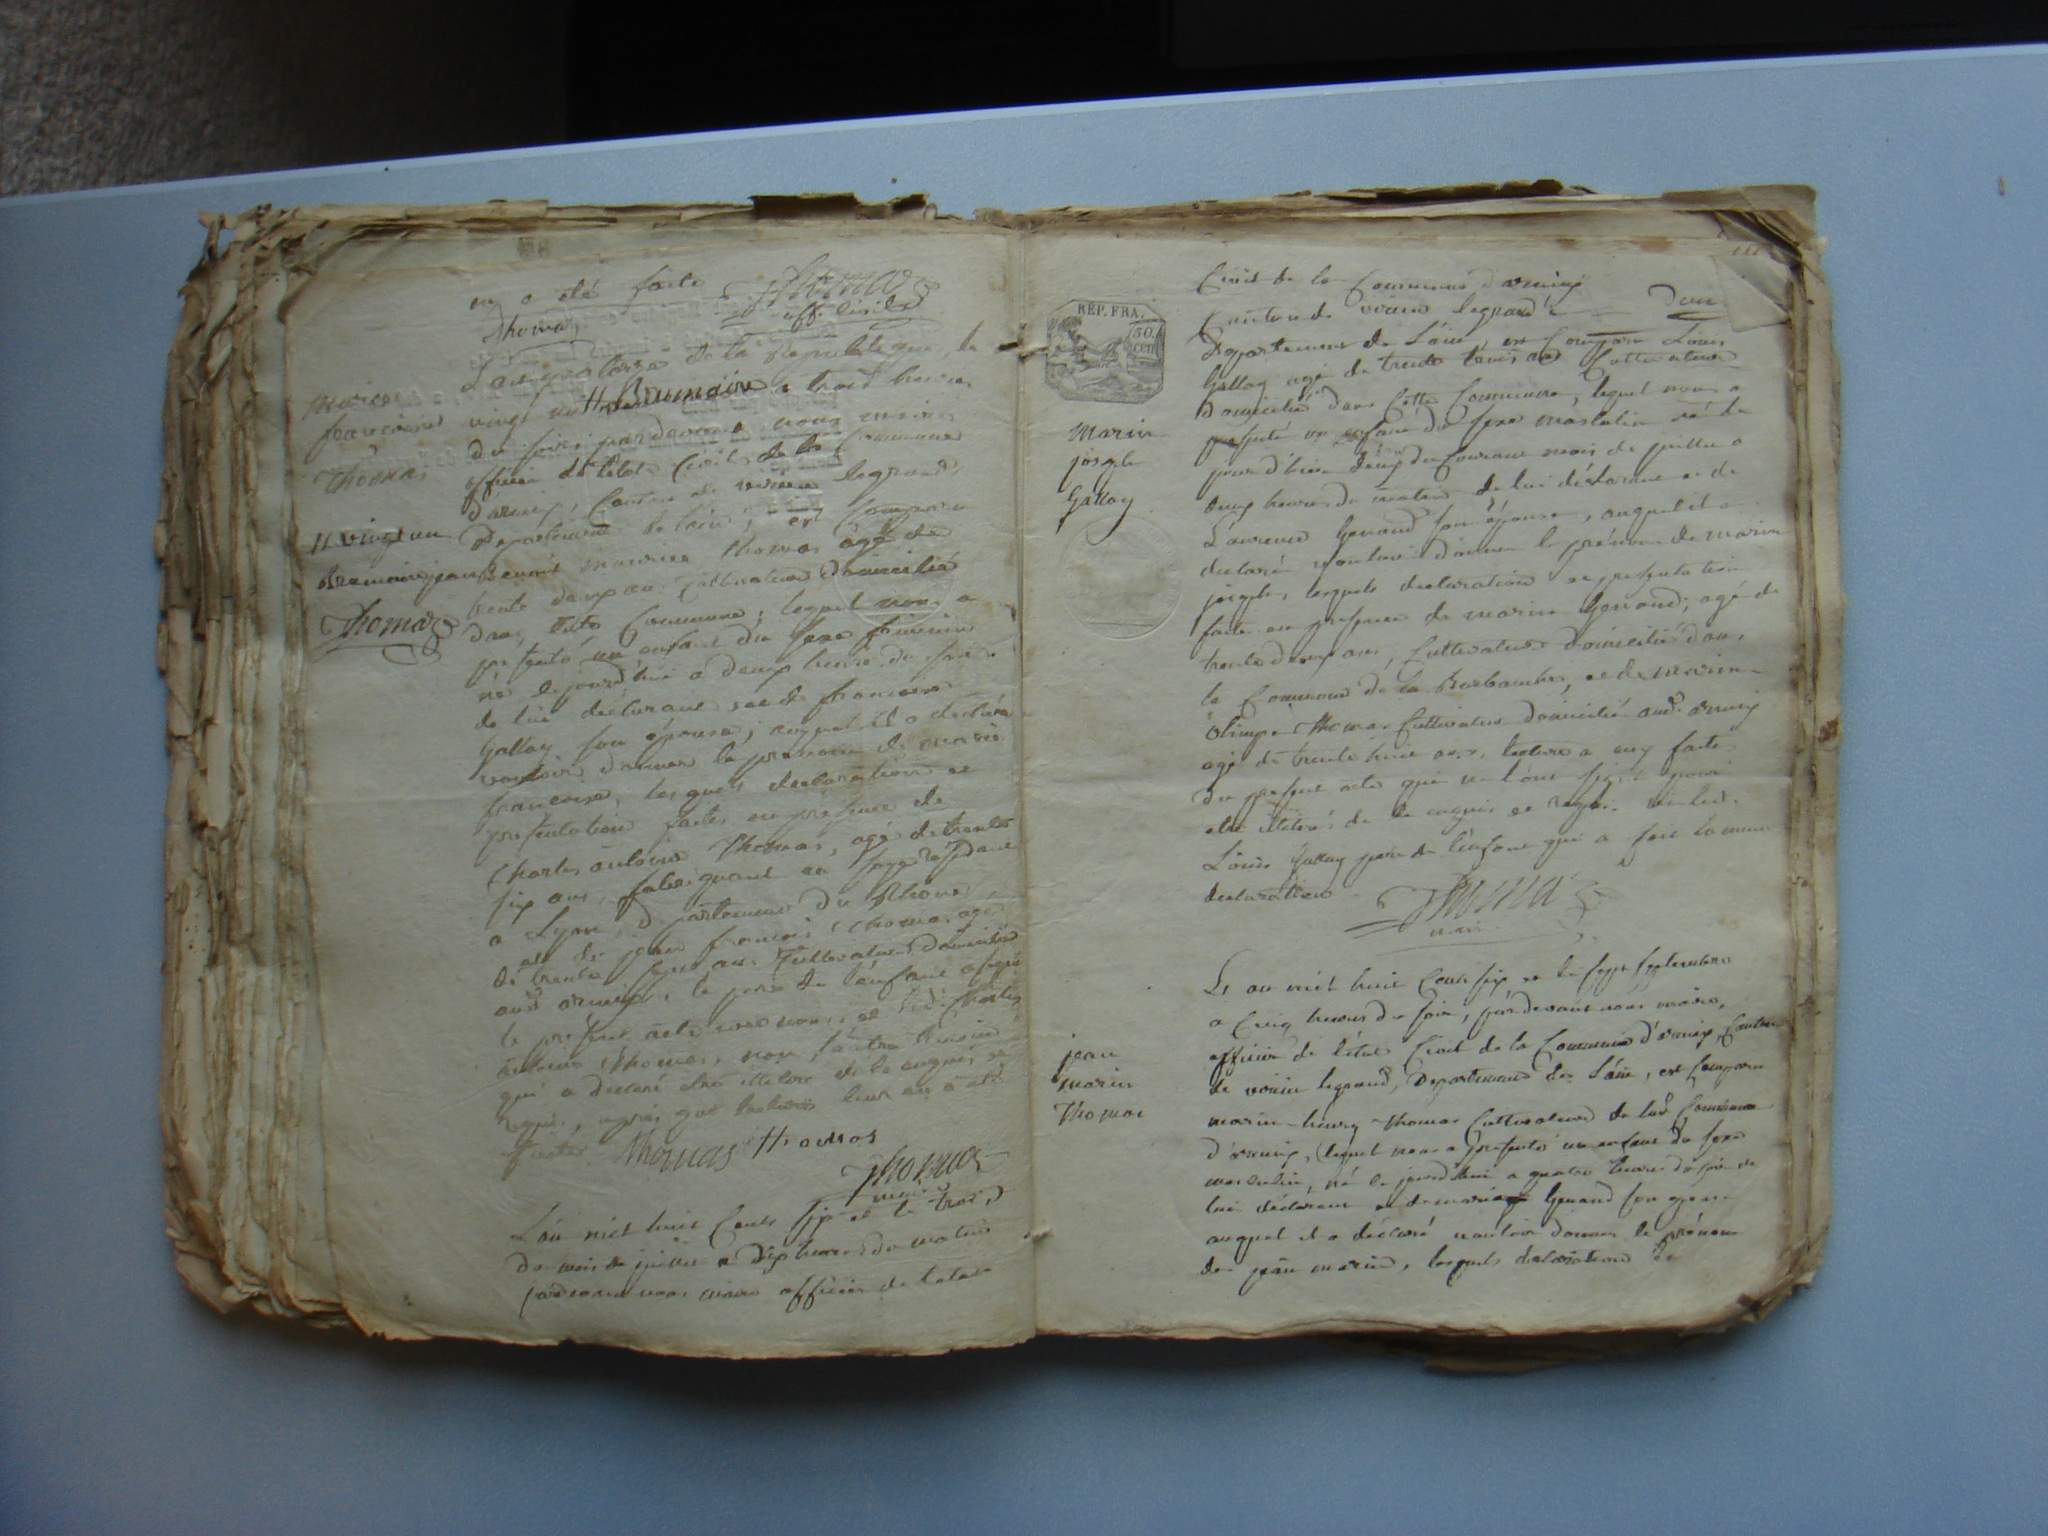 en a été faite Thomas
Thomas off. civile
L'an quatorze de la République, le
vingt un Brumaire a trois heures
du soir, pardevant nous maire
officier de l'état Civil de la Commune
d'arming, Canton de virieu legrand,
Département de lain, est Comparu
Benoit maurice thomas agé de
trente deux ans Cultivateur domicilié
dans cette Commune, lequel nous a
présenté un enfant du sexe feminin
né cejourd'hui a deux heures du soir
de lui déclarant et de francoise
Gallay son épouse, auquel il a declaré
vouloir donner le prenom de
francoise, lesquels declaration et
présentation faites en présence de
Charles antoine Thomas, agé de trente
six ans, fabriquant
a Lyon, département du Rhone
et de jean francois thomas agé
de trente ans Cultivateur domicilié
aud. le pere de l'enfant a signé
le présent acte avec nous, et led. Charles
antoine Thomas, non l'autre temoin
qui a declaré etre illetéré de ce enquis et
requis, après que lecture leur en a été
faite. Thomas Thomas
Thomas
maire
L'an mil huit Cents six et le trois
du mois de juillet a dix heures du matin
pardevant nous maire officier de l'etat
francoise
Thomas
vingt un
Brumaire jean
Thomas
REP. FRA.
50
CEN
Marin
joseph
Gallay
Civil de la Commune d'arming
Canton de virieu legrand
Département de Lain, est Comparu Louis
Gallay agé de trente trois ans Cultivateur
domicilié dans Cette Commune, lequel nous a
présenté un enfant du sexe masculin né le
jour d'hier deux du Courant mois de juillet a
deux heures du matin de lui déclarant et de
Laurence Genand son épouse, auquel il a
declaré vouloir donner le prénom de marin
joseph, lesquels declaration et presentation
faite en presence de marin Genand, agé de
trente deux ans, Cultivateur domicilié dans
la Commune de la Burbanche, et de marin
olimpe Thomas Cultivateur domicilié aud. arming
agé de trente huit ans, lecture a eux faite
du present acte qui n'ont signé pour
etre illeteré de ce enquis et requis
Louis Gallay pere de l'enfant qui a fait la meme
declaration.
Thomas
maire
jean
marin
Thomas
L'an mil huit Cent six et le sept septembre
a Cinq heures du soir, pardevant nous maire,
officier de l'etat Civil de la Commune d'arming, Canton
de virieu legrand, Departement de Lain, est Comparu
marin henry Thomas Cultivateur de lad. Commune
d'arming, lequel nous a présenté un enfant du sexe
masculin, né le jourd'hui a quatre heures du soir de
lui déclarant et de marie Genand son epouse
auquel il a déclaré vouloir donner le prénom
de jean marin, lesquels déclaration de